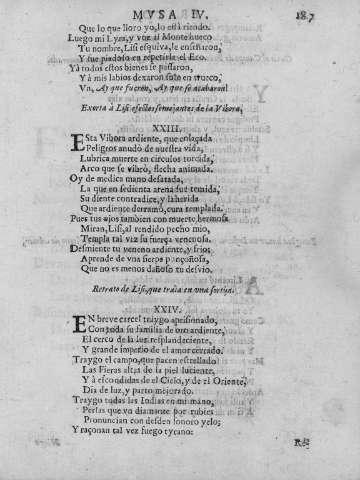 MVSA IV. 187
Que lo que lloro yo, lo està riendo.
Luego mi Lyra, y voz al Monte hueco
Tu nombre, Lisi esquiva, le enseñaron,
Y fue piadoso en repetirle el Eco.
Yà todos estos bienes se passaron,
Y à mis labios dexaron solo en trueco,
Vn, Ay que fueron, Ay que se acabaron!
Exorta à Lisi efectos semejantes de la Vibora.
XXIII.
ESta Vibora ardiente, que enlaçada
Peligros anudò de nuestra vida,
Lubrica muerte en circulos torcida,
Arco que se vibrò, flecha animada.
Oy de medica mano desatada,
La que en sedienta arena fue temida,
Su diente contradice, y la herida
Que ardiente derramò, cura templada.
Pues tus ojos tambien con muerte hermosa
Miran, Lisi, al rendido pecho mio,
Templa tal vez su fuerça venenosa.
Desmiente tu veneno ardiente, y frio;
Aprende de vna sierpe ponçoñosa,
Que no es menos dañoso tu desvio.
Retrato de Lisi, que traia en vna sortija.
XXIV.
EN breve carcel traygo aprisionado,
Con toda su familia de oro ardiente,
El cerco de la luz resplandeciente,
Y grande imperio de el amor cerrado.
Traygo el campo, que pacen estrellado
Las Fieras altas de la piel luciente,
Y à escondidas de el Cielo, y de el Oriente,
Dia de luz, y parto mejorado.
Traygo todas las Indias en mi mano,
Perlas que vn diamante por rubies
Pronuncian con desden sonoro yelo;
Y raçonan tal vez fuego tyrano: